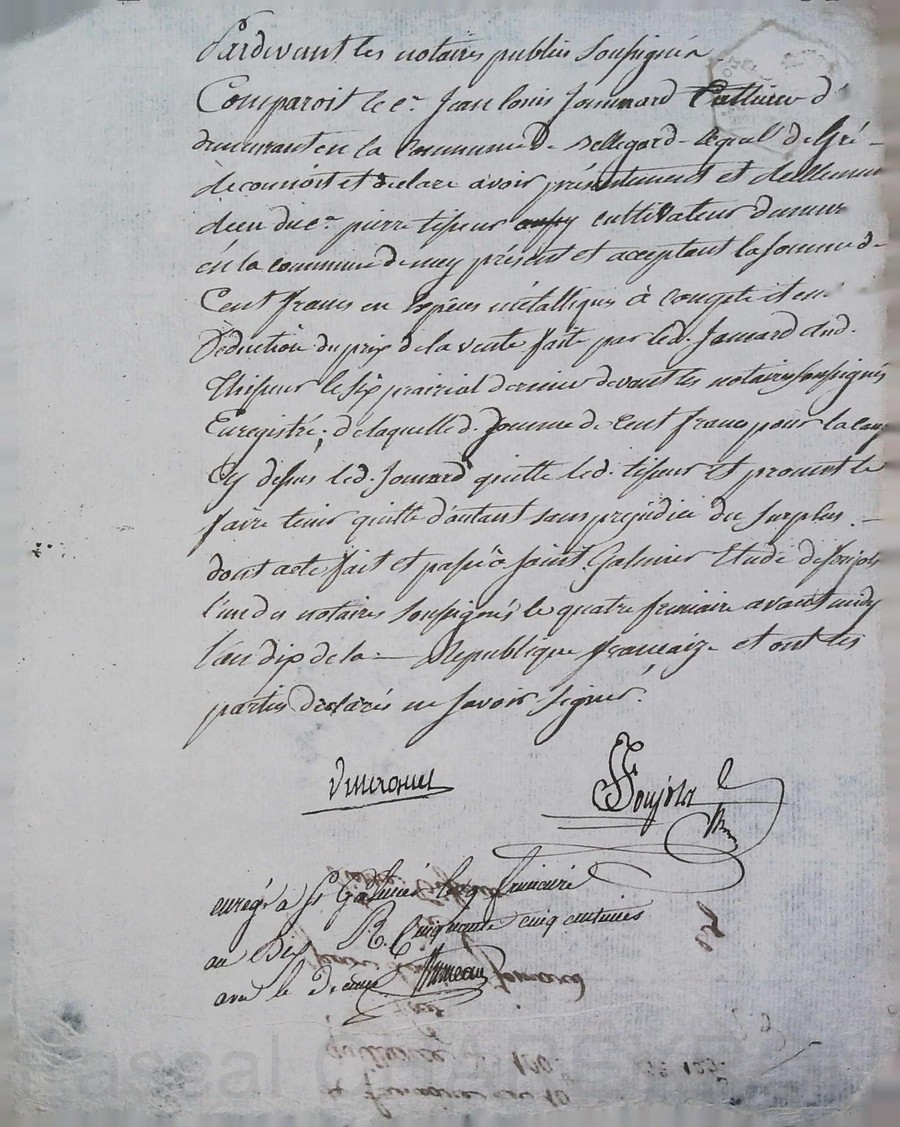 Pardevant les notaires publics soussignés
Comparoit le c.n Jean louis Jommard Cultivateur d
demeurant en la Commune de Bellegard lequel de gré
reconnoit et declare avoir présentement et réellement
du c.n pierre tisseur cultivateur demeur
en la commune de mey présent et acceptant la somme de
Cent francs en Espèces métalliques à compte et en
Déduction du prix de la vente faite par led. Jomard aud.
thisseur le six prairial dernier devant les notaires soussignés
Enregistré, de laquelle d. somme de Cent francs pour la cause
Cy dessus led. Jomard quitte led. tisseur et promet le
faire tenir quitte d'autant sans préjudice du surplus.
dont acte fait et passé à Saint Galmier Etude de Soujola
l'un des notaires soussignés le quatre frimaire avant midy
l'an dix de la République française et ont les
parties déclarés ne savoir signer.
Soujola
enregé a St Galmier le frimaire
an Dix R. Cinquante cinq centimes
avec le Decime
Jomard
quittance
100.
4 frimaire an 10